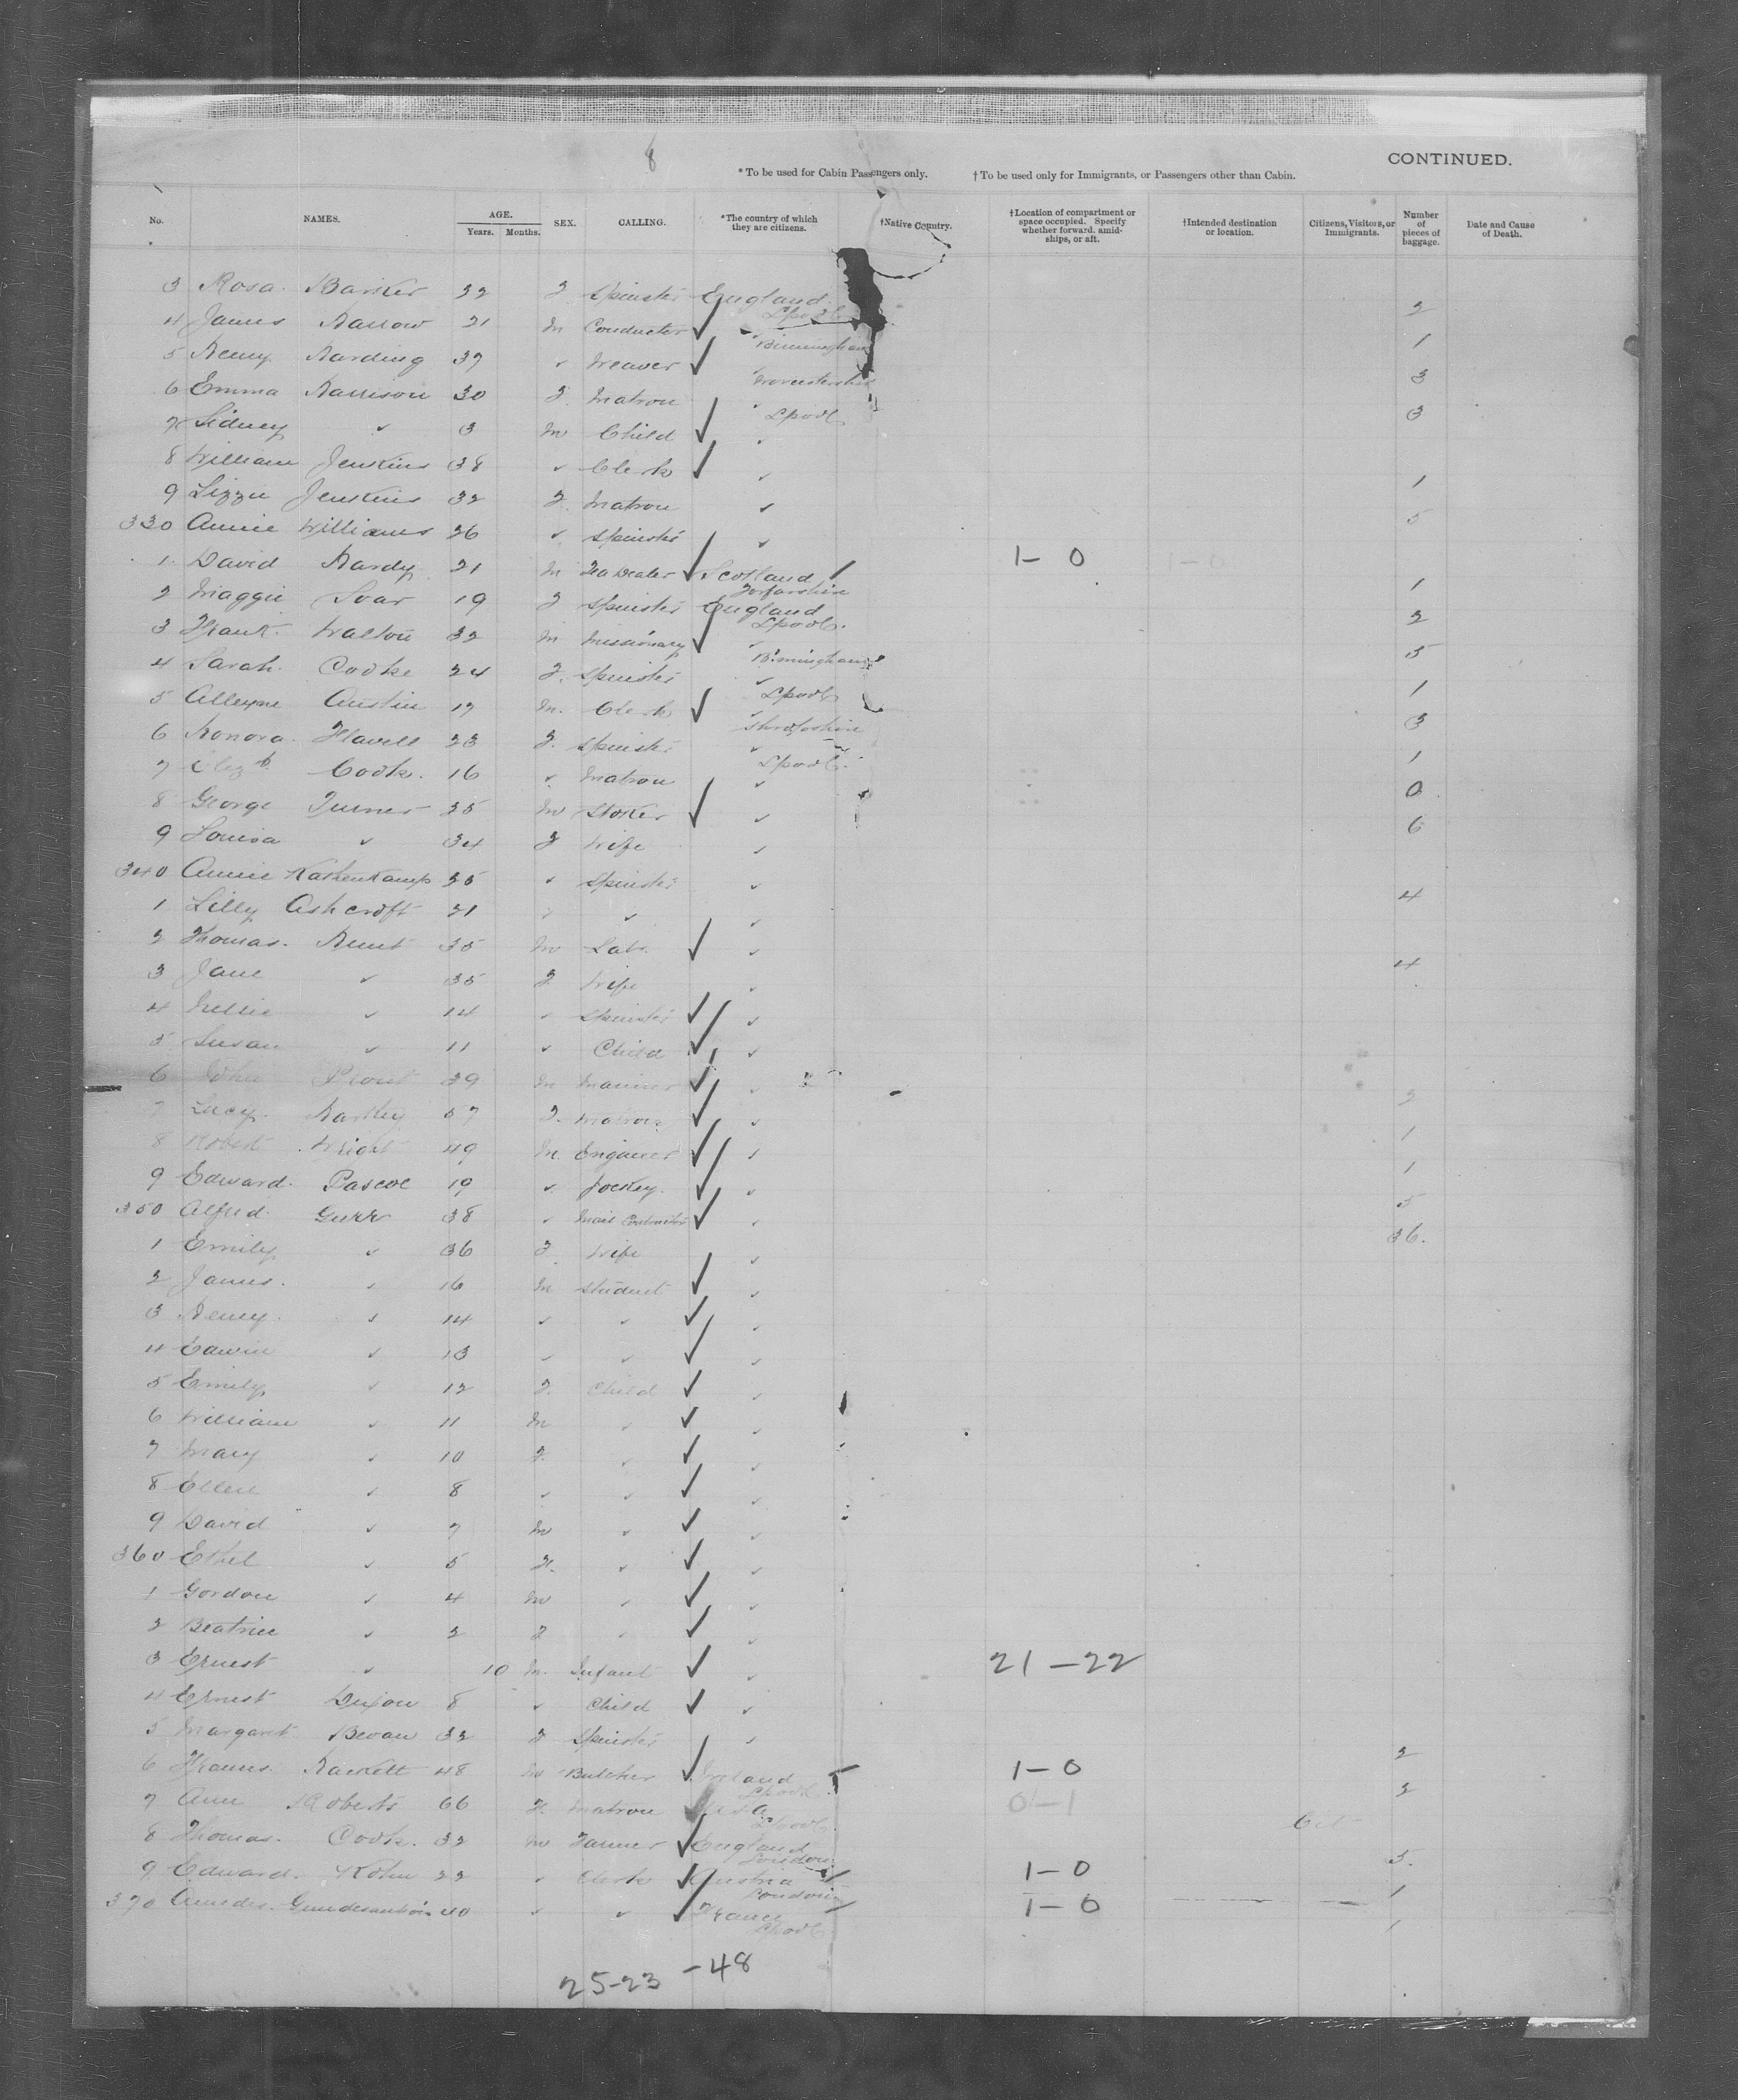 8
CONTINUED.
*To be used for Cabin Passengers only. †To be used only for Immigrants, or Passengers other than Cabin.
No. NAMES. AGE. Years. Months. SEX. CALLING. *The country of which they are citizens. †Native Country. †Location of compartment or space occupied. Specify whether forward, amidships, or aft. †Intended destination or location. Citizens, Visitors, or Immigrants. Number of pieces of baggage. Date and Cause of Death.
3 Rosa Barker 32 F Spinster England L'pool 2
4 James Harrow 21 M Conductor ✓ " Birmingham 1
5 Henry Harding 37 " Weaver ✓ " Worcestershire 3
6 Emma Harrison 30 F. Matron " L'pool 3
7 Sidney " 3 M Child ✓ "
8 William Jenkins 38 " Clerk ✓ " 1
9 Lizzie Jenkins 32 F. Matron " 5
330 Annie Williams 26 " Spinster "
1 David Hardy 21 M Tea Dealer ✓ Scotland Forfarshire 1-0 1
2 Maggie Soar 19 F Spinster England L'pool 2
3 Frank Walton 32 M Missionary ✓ " Birmingham 5
4 Sarah Cooke 24 F. Spinster " L'pool 1
5 Alleyne Austin 17 M. Clerk ✓ " 3
6 Honora Flavell 23 F. Spinster " L'pool 1
7 Elizth Cook. 16 " Matron " 0
8 George Turner 35 M Stoker ✓ " 6
9 Louisa " 34 F Wife "
340 Annie 25 " Spinster " 4
1 Lilly Ashcroft 21 " " "
2 Thomas Hunt 35 M Labr ✓ " 4
3 Jane " 35 F Wife "
4 Nellie " 14 " Spinster ✓ "
5 Susan " 11 " Child ✓ "
6 John Prout 39 M Mariner ✓ " 2
7 Lucy Hartley 57 F. Matron ✓ " 1
8 Robert Wright 49 M. Engineer ✓ " 1
9 Edward Pascoe 19 " Jockey ✓ " 5
350 Alfred Gurr 38 " Mail Contractor ✓ " 36.
1 Emily " 36 F. Wife "
2 James " 16 M Student ✓ "
3 Henry " 14 " " ✓ "
4 Edwin " 13 " " ✓ "
5 Emily " 12 F. Child ✓ "
6 William " 11 M " ✓ "
7 Mary " 10 F. " ✓ "
8 Ellen " 8 " " ✓ "
9 David " 7 M " ✓ "
360 Ethel " 5 F. " ✓ "
1 Gordon " 4 M " ✓ "
2 Beatrice " 2 F " ✓ "
3 Ernest " 10 M. Infant ✓ " 21-22
4 Ernest Dixon 8 " Child ✓ "
5 Margaret Bevan 32 F Spinster " 2
6 Francis Hackett 48 M Butcher ✓ Ireland L'pool 1-0 2
7 Ann Roberts 66 F. Matron U.S.A. L'pool 0-1 Cit
8 Thomas Cook. 32 M Farmer ✓ England London 5.
9 Edward Kohn 22 " Clerk ✓ Austria London 1-0 1
370 40 " " ✓ France L'pool 1-0 1
25-23 -48